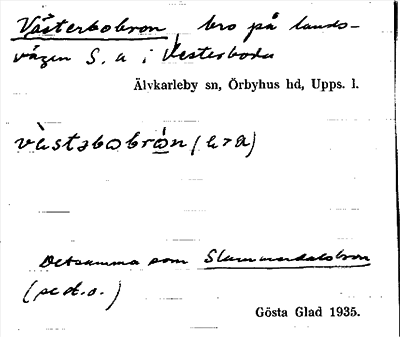 Västerbobron, bro på lands-
vägen S. a i Vesterboda
Älvkarleby sn, Örbyhus hd, Upps. l.
vàstəbobrón (a > a)
Detsamma som Slammardalsbron
(se d. o.)
Gösta Glad 1935.